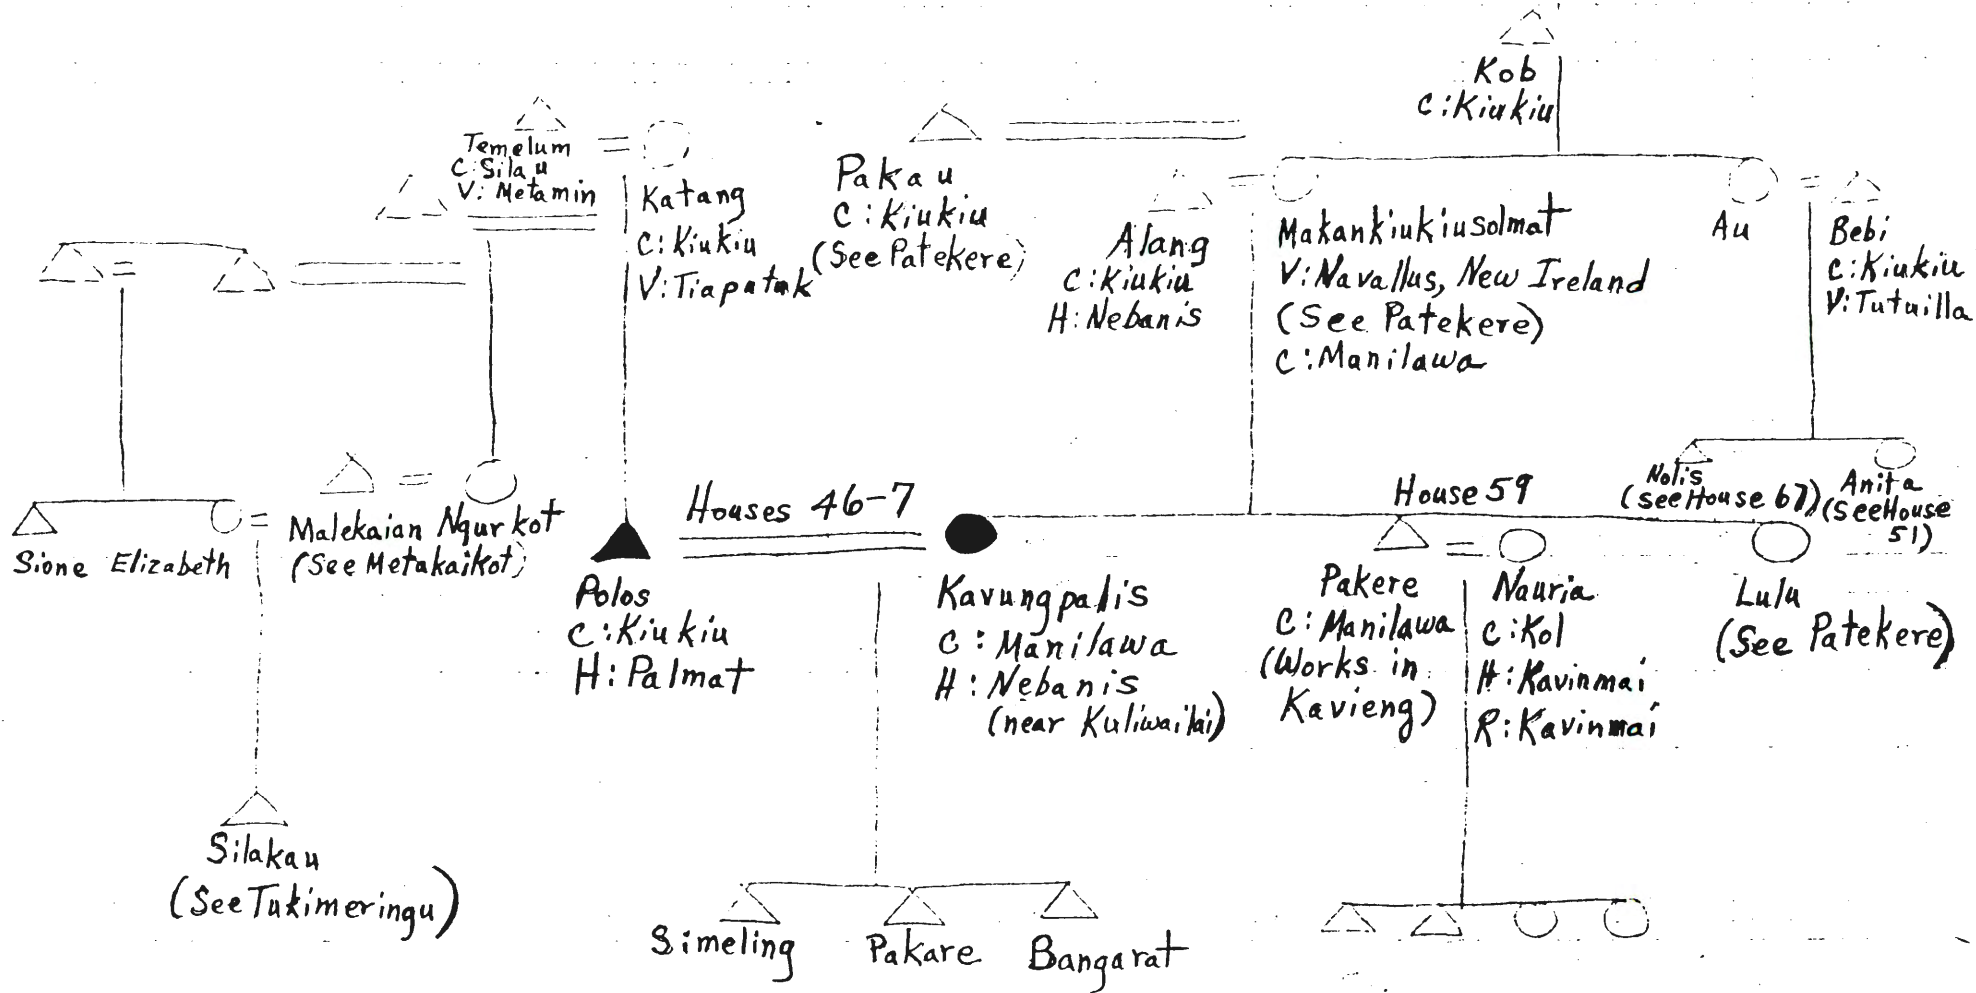 Kob
C:Kiukiu
Temelum
C:Silau
V:Metamin
Katang
C:Kiukiu
V:Tiapatuk
Pakau
C:Kiukiu
(See Patekere)
Alang
C:Kiukiu
H:Nebanis
Makankiukiusolmat
V:Navallus, New Ireland
(See Patekere)
C:Manilawa
Au
Bebi
C:Kiukiu
V:Tutuilla
Nolis
(see House 67)
Anita
(See House
51)
Sione
Elizabeth
Malekaian
Ngurkot
(See Metakaikot)
Houses 46-7
House 59
Polos
C:Kiukiu
H:Palmat
Kavungpalis
C:Manilawa
H:Nebanis
(near Kuliwailai)
Pakere
C:Manilawa
(Works in
Kavieng)
Nauria
C:Kol
H:Kavinmai
R:Kavinmai
Lulu
(See Patekere)
Silakau
(See Tukimeringu)
Simeling
Pakare
Bangarat